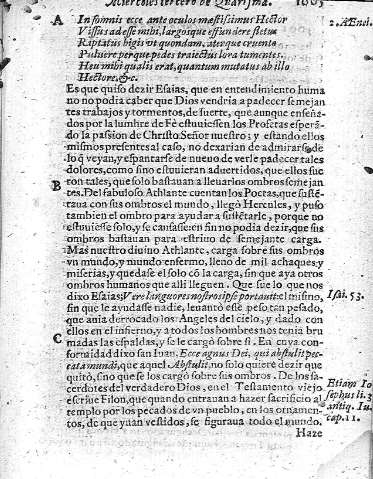 Miercoles tercero de Quaresma. 1003
A In somnis ecce ante oculos mæstissimus Hector 2. Æneı.
Vissus adesse mihi, largosque effundere fletus
Riptatus bigis vt quondam, aterque cruento
Puluere perque pedes traiectus lora tumentes.
Heu mihi qualis erat, quantum mutatus ab illo
Hectore. &c.
Es que quiso dezir Esaias, que en entendimiento huma
no no podia caber que Dios vendria a padecer semejan
tes trabajos y tormentos, de suerte, que aunque enseña-
dos por la lumbre de Fè estuuiessen los Profetas esperã-
do la passion de Christo Señor nuestro; y estando ellos
mismos presentes al caso, no dexarian de admirarse de
lo q̃ veyan, y espantarse de nueuo de verle padecer tales
dolores, como sino estuuieran aduertidos, que ellos fue
ron tales, que solo bastauan a lleuarlos ombros semejan
B tes. Del fabuloso Athlante cuentan los Poetas, que sustẽ-
taua con sus ombros el mundo, llegò Hercules, y puso
tambien el ombro para ayudar a sustẽtarle, porque no
estuuiesse solo, y se cansasse: en fin no podia dezir, que sus
ombros bastauan para estriuo de semejante carga.
Mas nuestro diuino Athlante, carga sobre sus ombros
vn mundo, y mundo enfermo, lleno de mil achaques, y
miserias, y quedase el solo cõ la carga, sin que aya otros
ombros humanos que alli lleguen. Que sue lo que nos
dixo Esaias; Vere languores nostros ipse portauit: el mismo, Isai. 53.
sin que le ayudasse nadie, leuantò esse peso tan pesado,
que auia derrocado los Angeles del cielo, y dado con
ellos en el infierno, y a todos los hombres nos tenia bru
C madas las espaldas, y se le cargò sobre si. En cuya con-
formidad dixo san Iuan. Ecce agnus Dei, qui abstulit pec-
cata mundi, que aquel Abstulit, no solo quiere dezir que
quitò, sino que se los cargò sobre sus ombros. De los sa-
cerdotes del verdadero Dios, en el Testamento viejo Etiam Io
escriue Filon, que quando entrauan a hazer sacrificio al sephus li. 3
templo por los pecados de vn pueblo, en los ornamen- antiq. Iu.
tos, de que yuan vestidos, se figuraua todo el mundo. cap. 11.
Haze